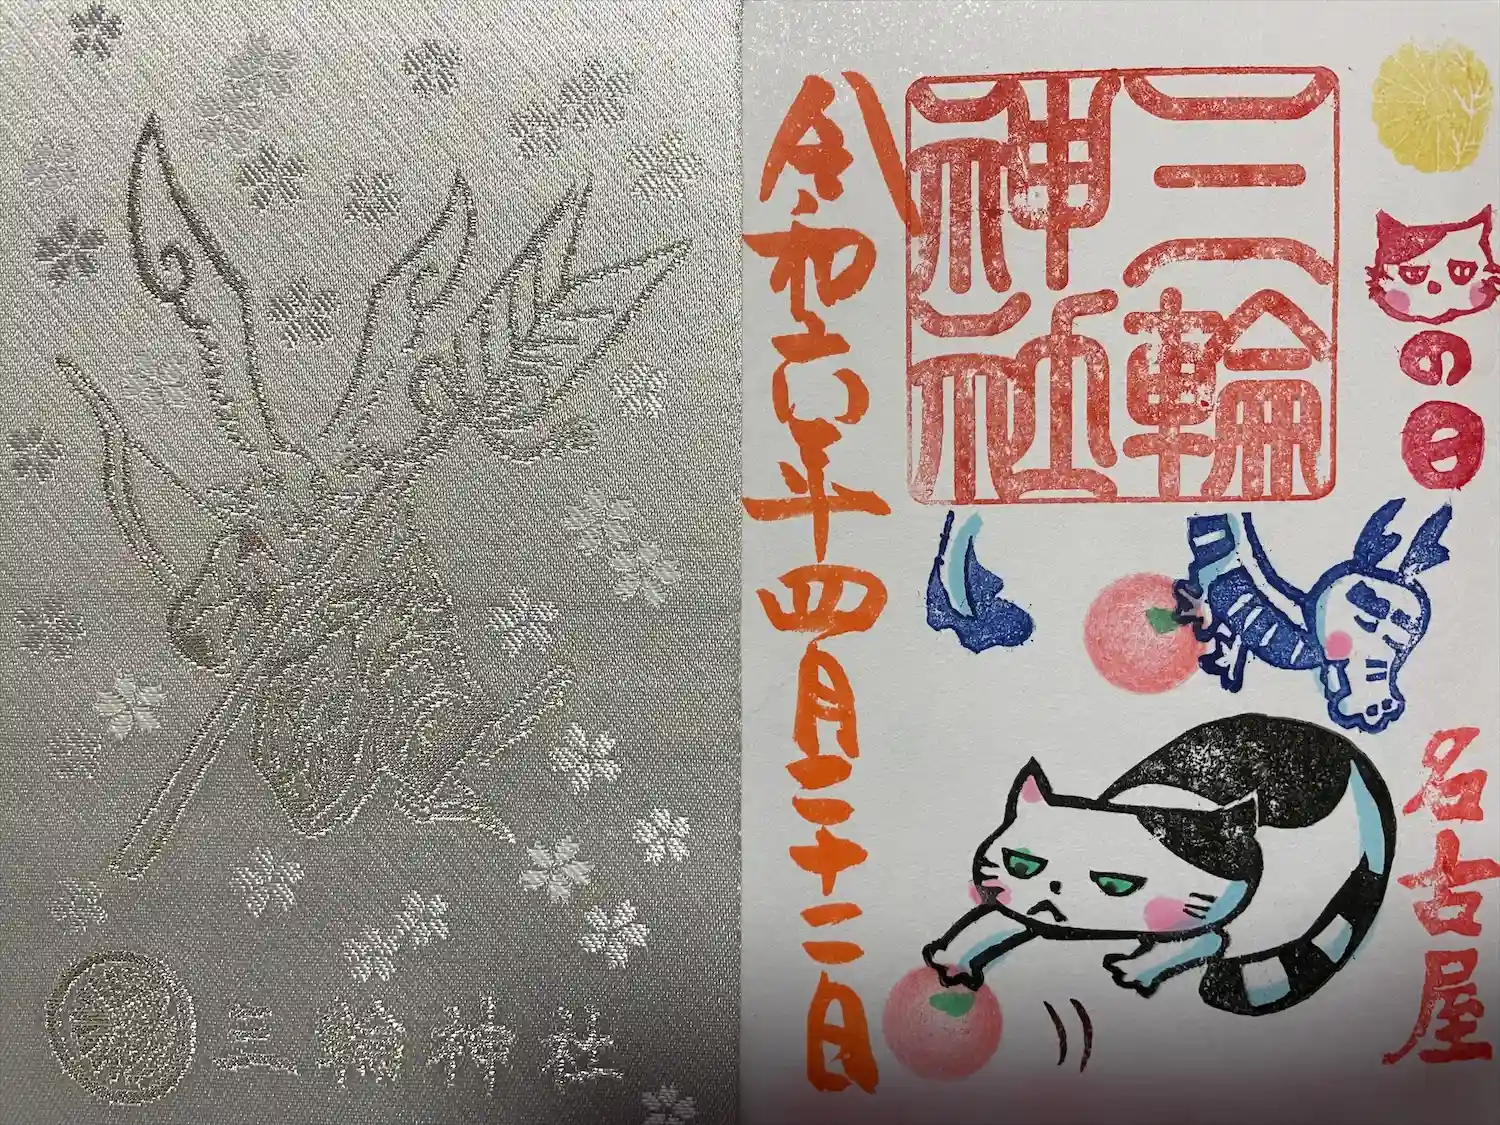 三輪神社
三輪
神社
の日
名古屋
令和六年四月二十二日